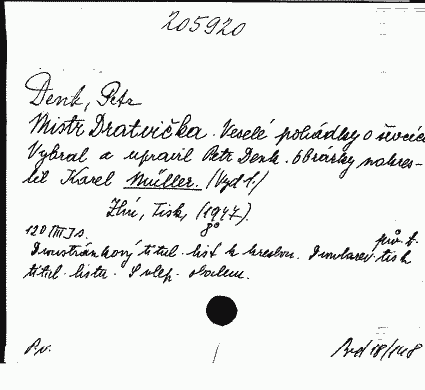 205920
Denk, Petr
Mistr Dratvička. Veselé pohádky o ševcích
Vybral a upravil Petr Denk. Obrázky nakres-
lil Karel Müller. (Vyd. 1.)
Zlín, Tisk, (1947).
8°
120 [III] s. pův. t.
Dvoustránkový titul. list s kresbou. Dvoubarev. tisk
titul. listu. S vlep. obálkou.
Pv.